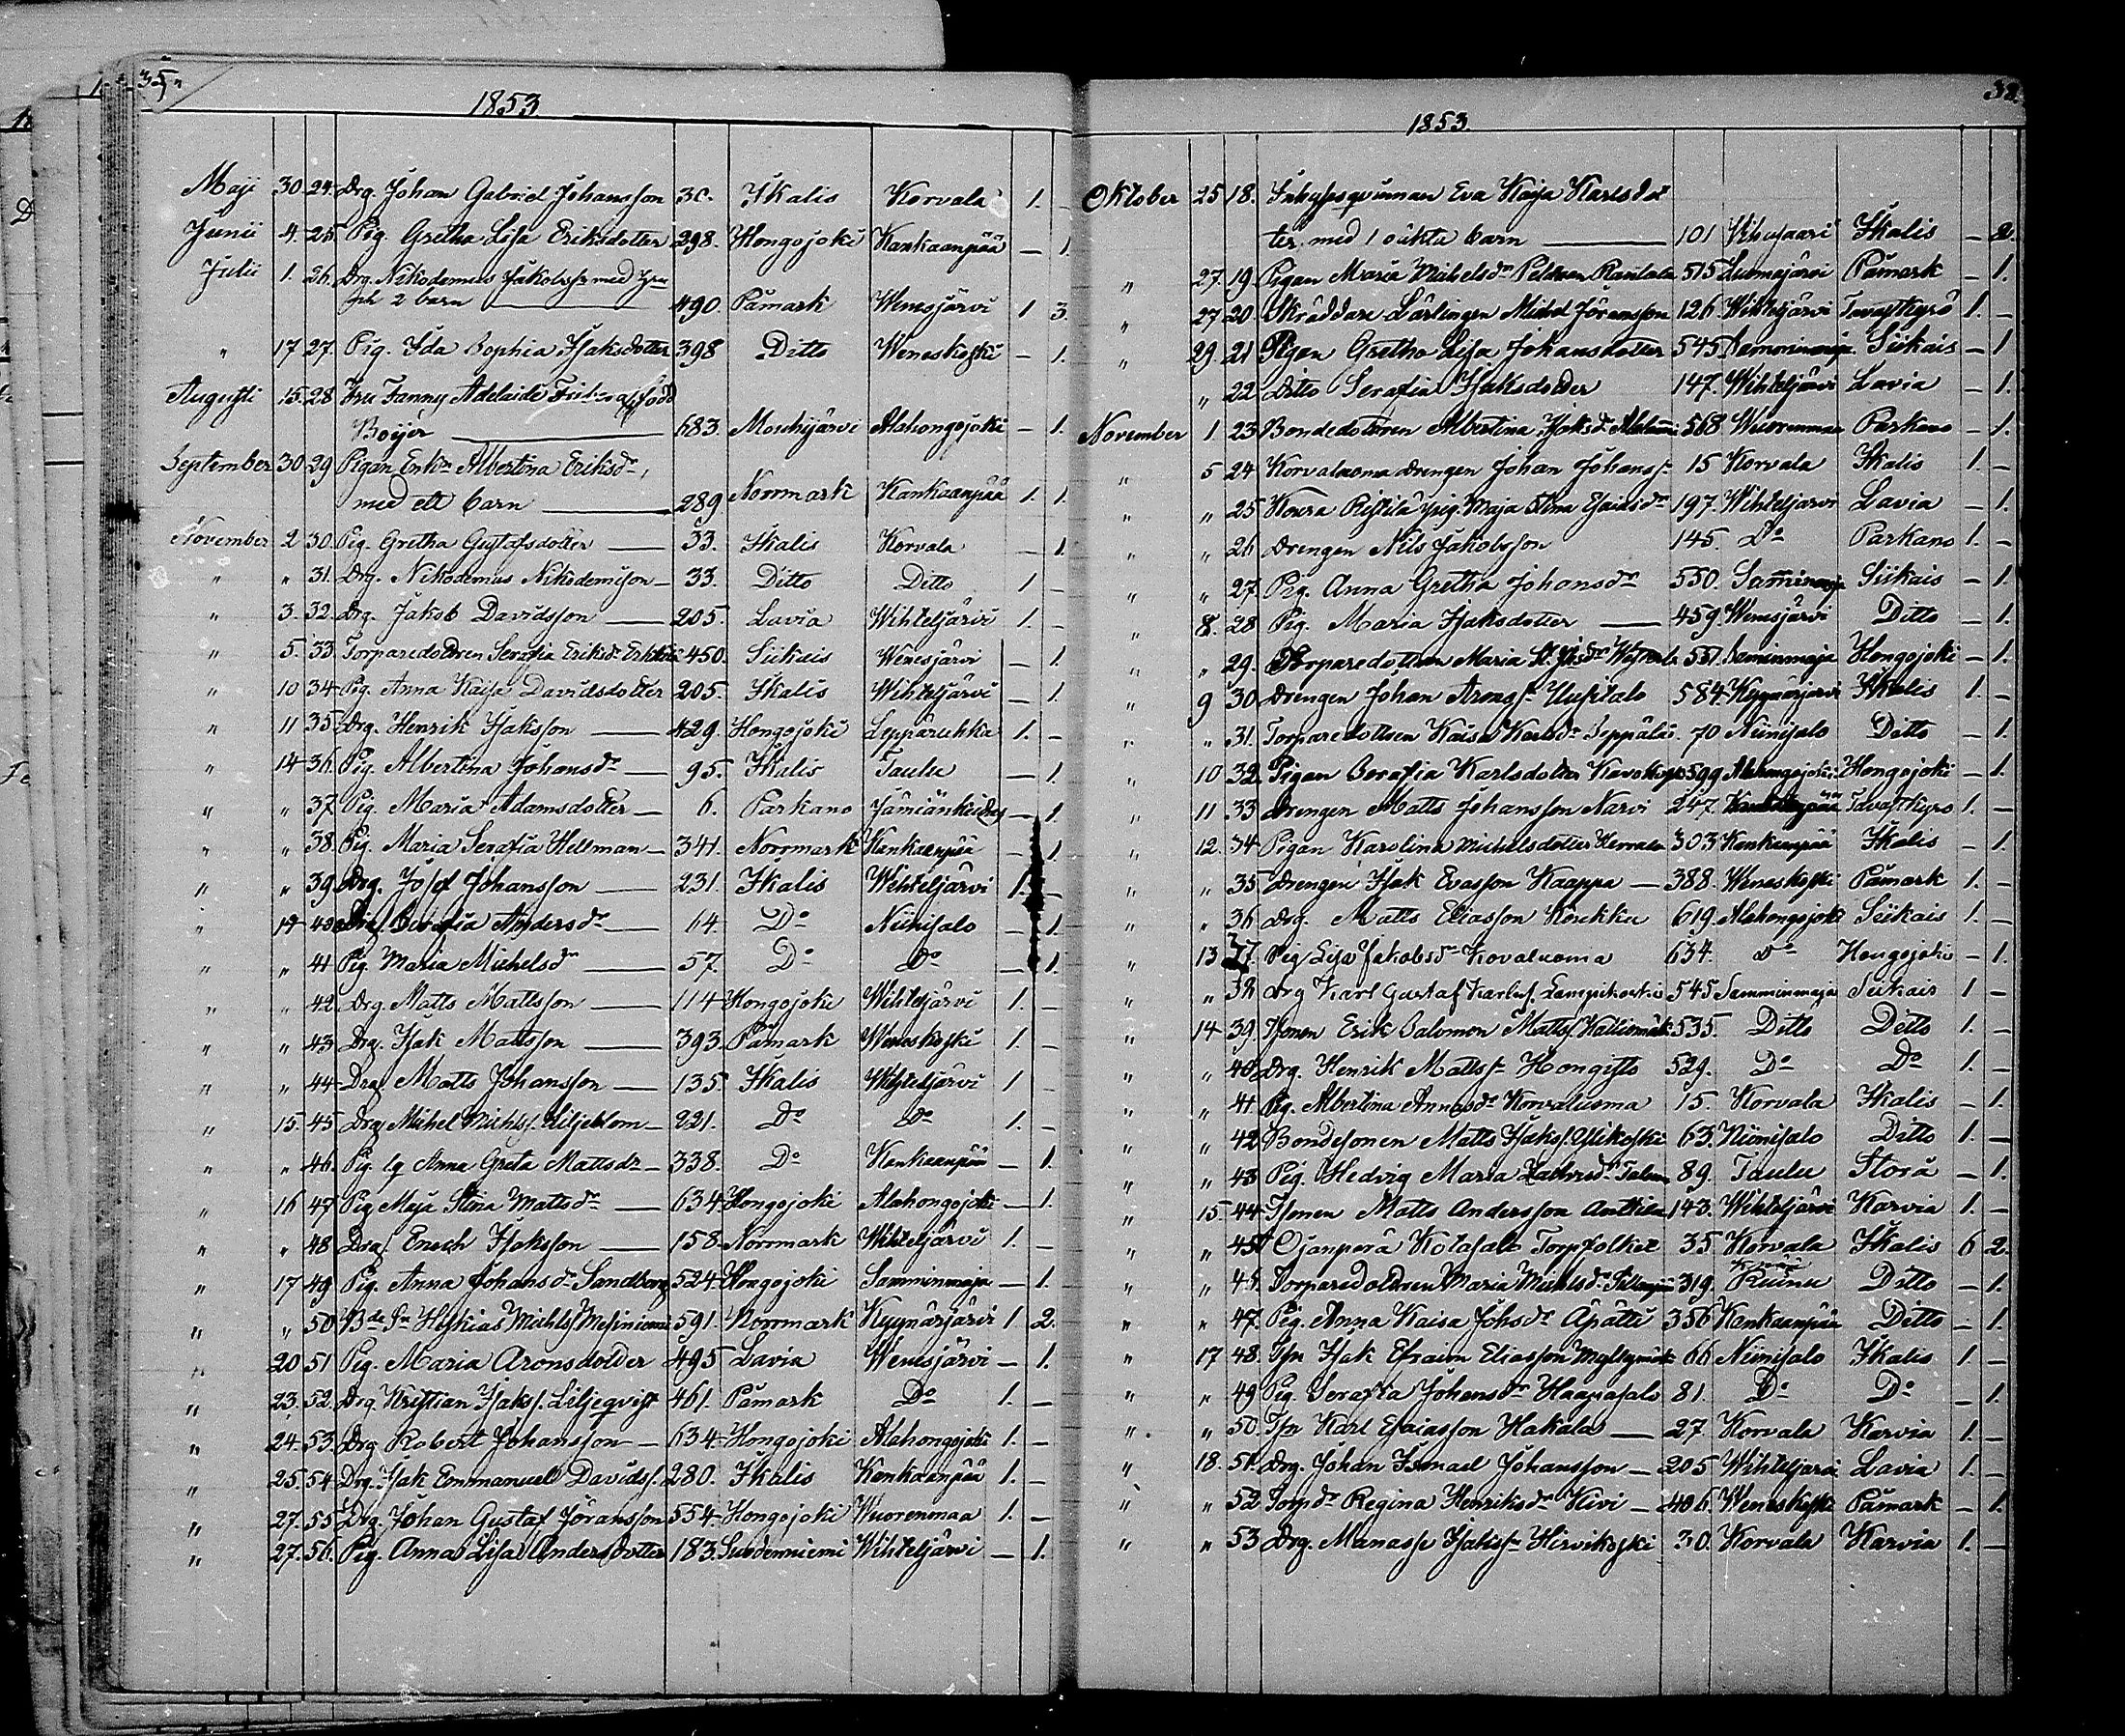 35
1853
Maji 30. 24. Drg. Johan Gabriel Johansson 30. Ikalis Korvala 1. –
Junii 4. 25. Pig. Gretha Lisa Eriksdotter 298. Hongojoki Kankaanpää – 1.
Julii 1. 26. Drg. Nikodemus Jakobss. med
och 2 barn 490. Påmark Wenesjärvi 1 3.
" 17 27. Pig. Ida Sophia Isaksdotter 398 Ditto Weneskoski – 1.
Augusti 15. 28 Fru Fanny Adelaide född
Boijer 683. Mouhijärvi Alahongojoki – 1.
September 30 29 Pigan Enk. Albertina Eriksdr,
med ett barn 289 Norrmark Kankaanpää 1. 1.
November 2 30. Pig. Gretha Gustafsdotter 33. Ikalis Korvala – 1.
" " 31. Drg. Nikodemus Nikodemisson 33. Ditto Ditto 1 –
" 3. 32. Drg. Jakob Davidsson 205. Lavia Wihteljärvi 1. –
" 5. 33. Torparedottren Serafia Eriksdr 450. Siikais Wenesjärvi – 1.
" 10 34 Pig. Anna Kaisa Davidsdotter 205. Ikalis Wihteljärvi – 1.
" 11 35. Drg. Henrik Isaksson 429. Hongojoki Leppäruhka 1. –
" 14 36. Pig. Albertina Johansdr 95. Ikalis Taulu – 1.
" " 37. Pig. Maria Adamsdotter 6. Parkano – 1.
" " 38. Pig. Maria Serafia Hellman 341. Norrmark Kankaanpää – 1
" " 39. Drg. Josef Johansson 231. Ikalis Wihteljärvi 1. –
" 14 40 Pig. Serafia Andersdr 64. Do Niinisalo – 1.
" " 41 Pig. Maria Michelsdr 57. Do Do – 1.
" " 42 Drg. Matts Mattsson 114 Hongojoki Wihteljärvi 1. –
" " 43 Drg. Isak Mattsson 393. Påmark Weneskoski 1. –
" " 44 Drg. Matts Johansson 135 Ikalis Wihteljärvi 1 –
" 15. 45 Drg. Michel Michlss. Liljeblom 221. Do Do 1. –
" " 46. Pig. Anna Greta Mattsdr 338. Do Kankaanpää – 1.
" 16 47 Pig Maja Stina Mattsdr 634 Hongojoki Alahongojoki – 1.
" " 48 Drg. Enoch Isaksson 158. Norrmark Wihteljärvi 1. –
" 17 49 Pig. Anna Johansdr Sandberg 524 Hongojoki Samminmaja – 1.
" " 50 Hiskias Michlss 591. Norrmark Kyynärjärvi 1 2.
" 20 51 Pig. Maria Aronsdotter 495 Lavia Wenesjärvi – 1.
" 23. 52. Drg. Kristian Isakss. Liljeqvist 461. Påmark Do 1. –
" 24. 53. Drg Robert Johansson 634 Hongojoki Alahongojoki 1. –
" 25. 54 Drg. Isak Emmanuel Davidss. 280. Ikalis Kankaanpää 1. –
" 27. 55 Drg. Johan Gustaf Jöransson 554 Hongojoki Wuorenmaa 1. –
" 27. 56. Pig. Anna Lisa Andersdotter 183. Suodenniemi Wihteljärvi – 1.
1853.
Oktober 25 18. Inhysesqvinnan Eva Kajsa Karlsdot
ter, med 1 oäkta barn 101 Vihusaari Ikalis – 2.
" 27. 19. Pigan Maria Michelsdr 515 Luomajärvi Påmark – 1.
" 27 20 Skräddare Lärlingen Michel Jöransson 126. Wihteljärvi Tavastkyrö 1. –
" 29. 21 Pigan Gretha Lisa Johansdotter 545 Siikais – 1
" " 22 Ditto Serafia Isaksdotter 147. Wihteljärvi Lavia – 1.
November 1. 23 Bondedottren Albertina Isaksdr 568 Wuorenmaa Parkano – 1.
" 5 24 Korvaluoma Drengen Johan Johanss. 15 Korvala Ikalis 1. –
" " 25 Ristilä pig. Maja Stina Esaiasdr 197. Wihteljärvi Lavia – 1.
" " 26 Drengen Nils Jakobsson 145. Do Parkano 1. –
" " 27. Pig. Anna Gretha Johansdr 550. Samminmaja Siikais – 1.
" 8. 28 Pig. Maria Isaksdotter 459. Wenesjärvi Ditto – 1.
" " 29. Torparedottren Maria 551. Samminmaja Hongojoki – 1.
" 9 30 Drengen Johan Aronss. Uusitalo 584. Kyynärjärvi Ikalis 1. –
" " 31. Torparedottren Kaisa Seppälä 70 Niinisalo Ditto – 1.
" 10 32 Pigan Serafia Karlsdotter 599 Alahongojoki Hongojoki – 1.
" 11 33 Drengen Matts Johansson Narvi 247. Kankaanpää Tavastkyro 1. –
" 12. 34 Pigan Karolina Michelsdotter 303 Kankaanpää Ikalis – 1
" " 35 Drengen Isak Evasson Kaappa 388. Weneskoski Påmark 1. –
" " 36 Drg. Matts Eliasson Koukku 619. Alahongojoki Siikais 1. –
" 13 37. Pig Lisa Jakobsdr Kovaluoma 634. Do Hongojoki – 1.
" " 38 Drg Karl Gustaf Karlss. 545 Samminmaja Siikais 1 –
" 14 39. Sonen Erik Salomon Mattss. 535. Ditto Ditto 1. –
" " 40. Drg. Henrik Mattss. Hongisto 529. Do Do 1. –
" " 41 Pig. Albertina Annasdr Korvaluoma 15. Korvala Ikalis – 1.
" " 42 Bondesonen Matts Isakss. Ylikoski 63. Niinisalo Ditto 1. –
" " 43 Pig. Hedvig Maria 89. Taulu Storå – 1.
" 15. 44 Sonen Matts Andersson Anttila 143. Wihteljärvi Karvia 1. –
" " 45 Ojanperä Kotasalo Torpfolket 35 Korvala Ikalis 6 2.
" " 45. Torparedottren Maria Michlsdr 319. Ruinu Ditto – 1.
" " 47. Pig. Anna Kaisa Johsdr Äpätti 356 Kankaanpää Ditto – 1.
" 17 48. Isak Efraim Eliasson 66 Niinisalo Ikalis 1. –
" " 49 Pig. Serafia Johansdr Haapasalo 81. Do Do – 1.
" " 50. Karl Esaiasson Hakala 27 Korvala Karvia 1. –
" 18. 51. Drg. Johan Ismael Johansson 205 Wihteljärvi Lavia 1. –
" " 52 Torpdr Regina Henriksdr Kivi 406. Weneskoski Påmark – 1.
" " 53 Drg. Manasse Isakss. Hirvikoski 30. Korvala Karvia 1. –